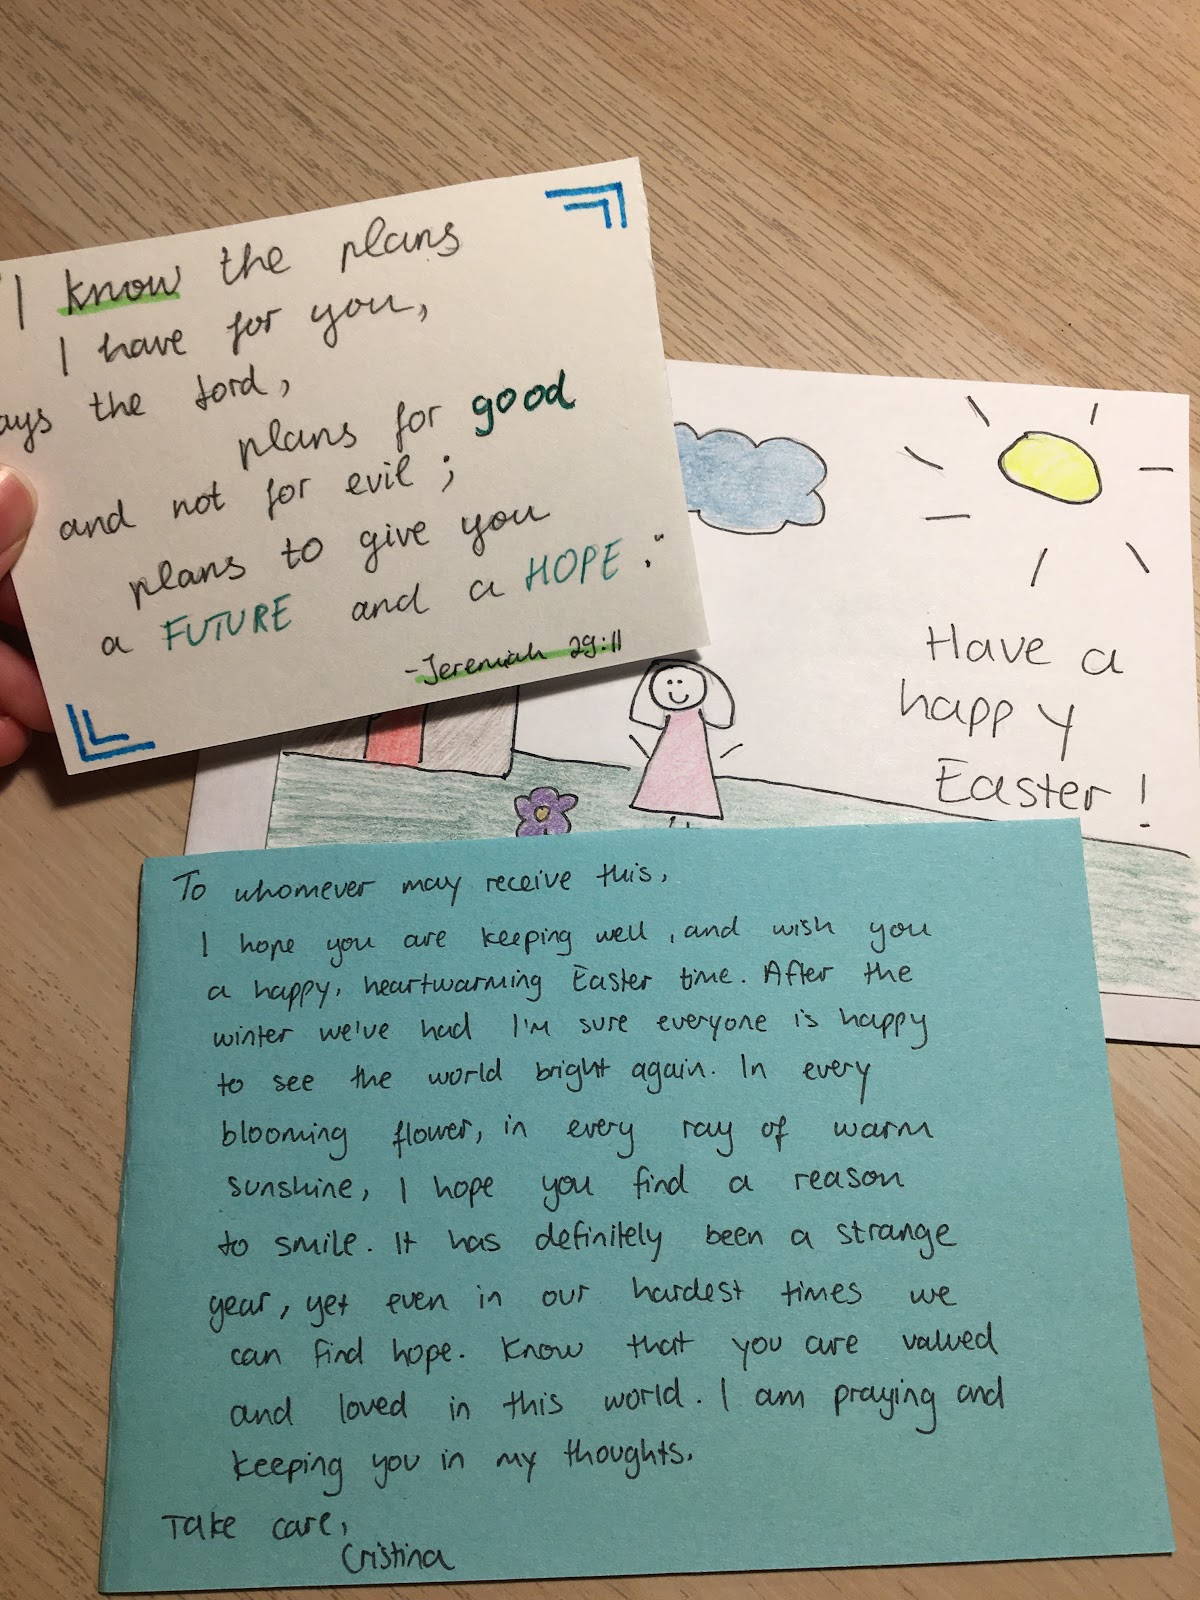 "I know the plans
I have for you,
ays the Lord,
plans for good
and not for evil;
plans to give you
a FUTURE and a HOPE."
-Jeremiah 29:11
Have a
happy
Easter!
To whomever may receive this,
I hope you are keeping well, and wish you
a happy, heartwarming Easter time. After the
winter we've had I'm sure everyone is happy
to see the world bright again. In every
blooming flower, in every ray of warm
sunshine, I hope you find a reason
to smile. It has definitely been a strange
year, yet even in our hardest times we
can find hope. Know that you are valued
and loved in this world. I am praying and
keeping you in my thoughts.
Take care,
Cristina